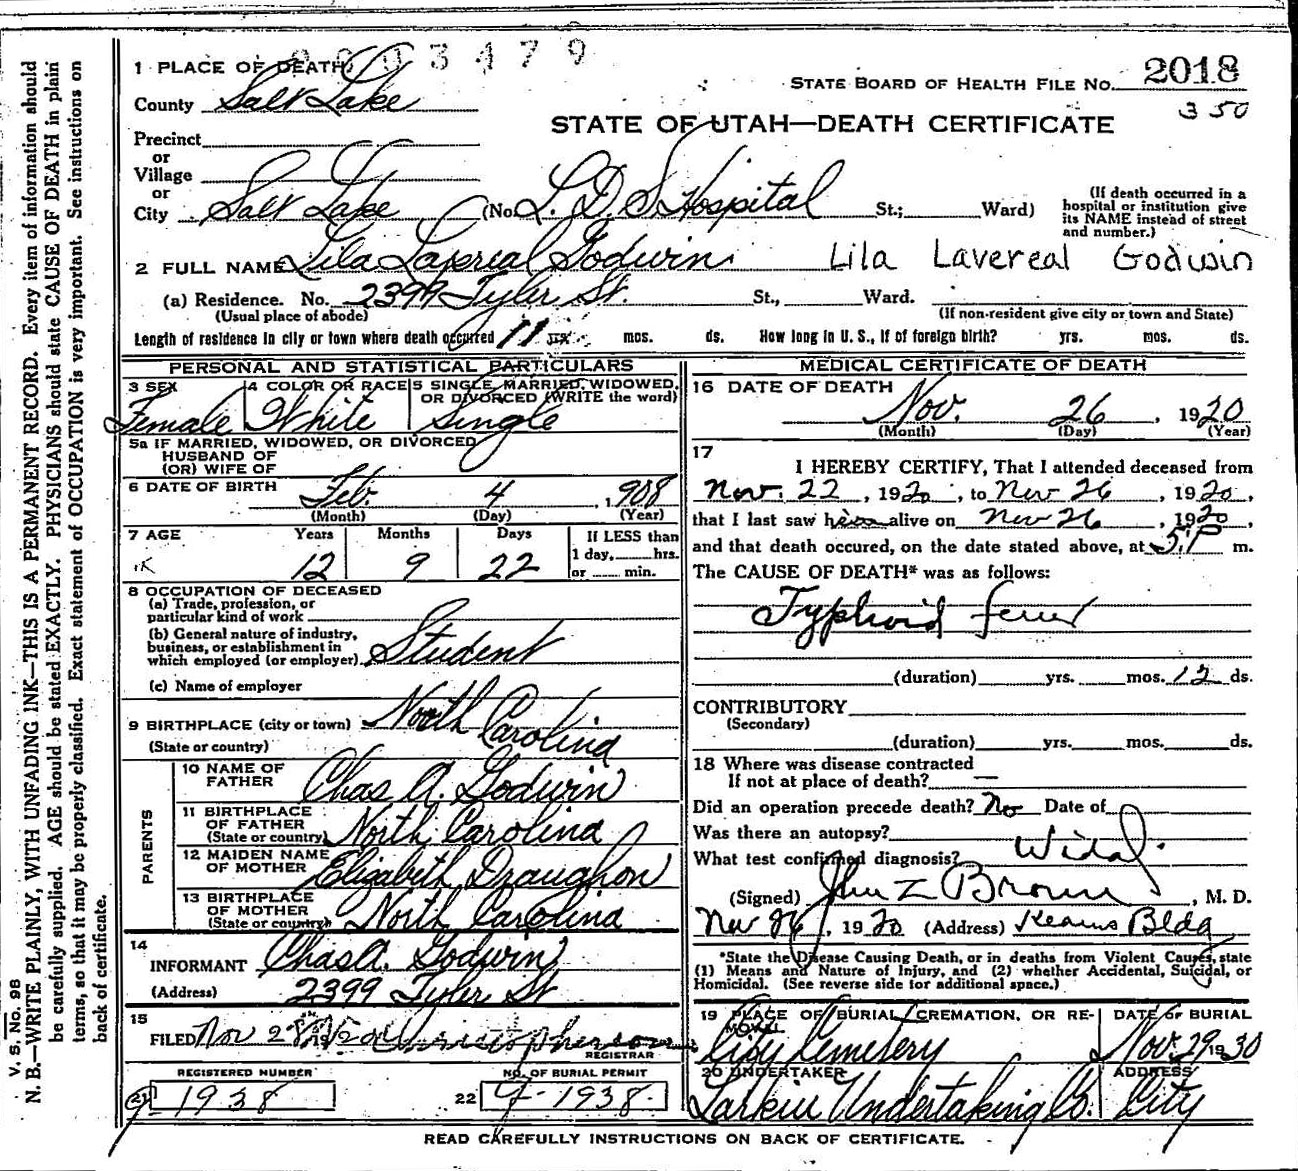 0003479
1 PLACE OF DEATH
STATE BOARD OF HEALTH FILE No. 2018
County Salt Lake
350
STATE OF UTAH—DEATH CERTIFICATE
Precinct
or
Village
or
City Salt Lake (No. L. D. S Hospital St.; Ward)
(If death occurred in a
hospital or institution give
its NAME instead of street
and number.)
2 FULL NAME Lila Lavereal Godwin Lila Lavereal Godwin
(a) Residence. No. 2399 Tyler St. St., Ward.
(Usual place of abode) (If non-resident give city or town and State)
Length of residence in city or town where death occurred 11 yrs. mos. ds. How long in U. S., if of foreign birth? yrs. mos. ds.
PERSONAL AND STATISTICAL PARTICULARS
3 SEX 4 COLOR OR RACE 5 SINGLE, MARRIED, WIDOWED,
OR DIVORCED (WRITE the word)
Female White Single
5a IF MARRIED, WIDOWED, OR DIVORCED
HUSBAND OF
(OR) WIFE OF
6 DATE OF BIRTH Feb. 4 , 1908
(Month) (Day) (Year)
7 AGE Years Months Days If LESS than
1 day, hrs.
or min.
12 9 22
8 OCCUPATION OF DECEASED
(a) Trade, profession, or
particular kind of work
(b) General nature of industry,
business, or establishment in
which employed (or employer) Student
(c) Name of employer
9 BIRTHPLACE (city or town) North Carolina
(State or country)
PARENTS
10 NAME OF
FATHER Chas A. Godwin
11 BIRTHPLACE
OF FATHER
(State or country) North Carolina
12 MAIDEN NAME
OF MOTHER Elizabeth Draughon
13 BIRTHPLACE
OF MOTHER
(State or country) North Carolina
14
INFORMANT Chas A. Godwin
(Address) 2399 Tyler St
15
FILED Nov 29
REGISTRAR
REGISTERED NUMBER NO. OF BURIAL PERMIT
21 1938 22 1938
MEDICAL CERTIFICATE OF DEATH
16 DATE OF DEATH
Nov. 26 , 1920
(Month) (Day) (Year)
17
I HEREBY CERTIFY, That I attended deceased from
Nov. 22 , 1920 , to Nov 26 , 1920 ,
that I last saw h alive on Nov 26 , 1920 ,
and that death occured, on the date stated above, at 5 P m.
The CAUSE OF DEATH* was as follows:
Typhoid fever
(duration) yrs. mos. 12 ds.
CONTRIBUTORY
(Secondary)
(duration) yrs. mos. ds.
18 Where was disease contracted
If not at place of death? —
Did an operation precede death? No Date of
Was there an autopsy?
What test confirmed diagnosis? Widal.
(Signed) Jhn Z Brown , M. D.
Nov 26 , 1920 (Address) Kearns Bldg
*State the Disease Causing Death, or in deaths from Violent Causes, state
(1) Means and Nature of Injury, and (2) whether Accidental, Suicidal, or
Homicidal. (See reverse side for additional space.)
19 PLACE OF BURIAL, CREMATION, OR RE-
MOVAL DATE OF BURIAL
City Cemetery Nov. 29 1930
20 UNDERTAKER ADDRESS
Larkin Undertaking Co. City
READ CAREFULLY INSTRUCTIONS ON BACK OF CERTIFICATE.
V. S. No. 98
N. B.—WRITE PLAINLY, WITH UNFADING INK—THIS IS A PERMANENT RECORD. Every item of information should
be carefully supplied. AGE should be stated EXACTLY. PHYSICIANS should state CAUSE OF DEATH in plain
terms, so that it may be properly classified. Exact statement of OCCUPATION is very important. See instructions on
back of certificate.